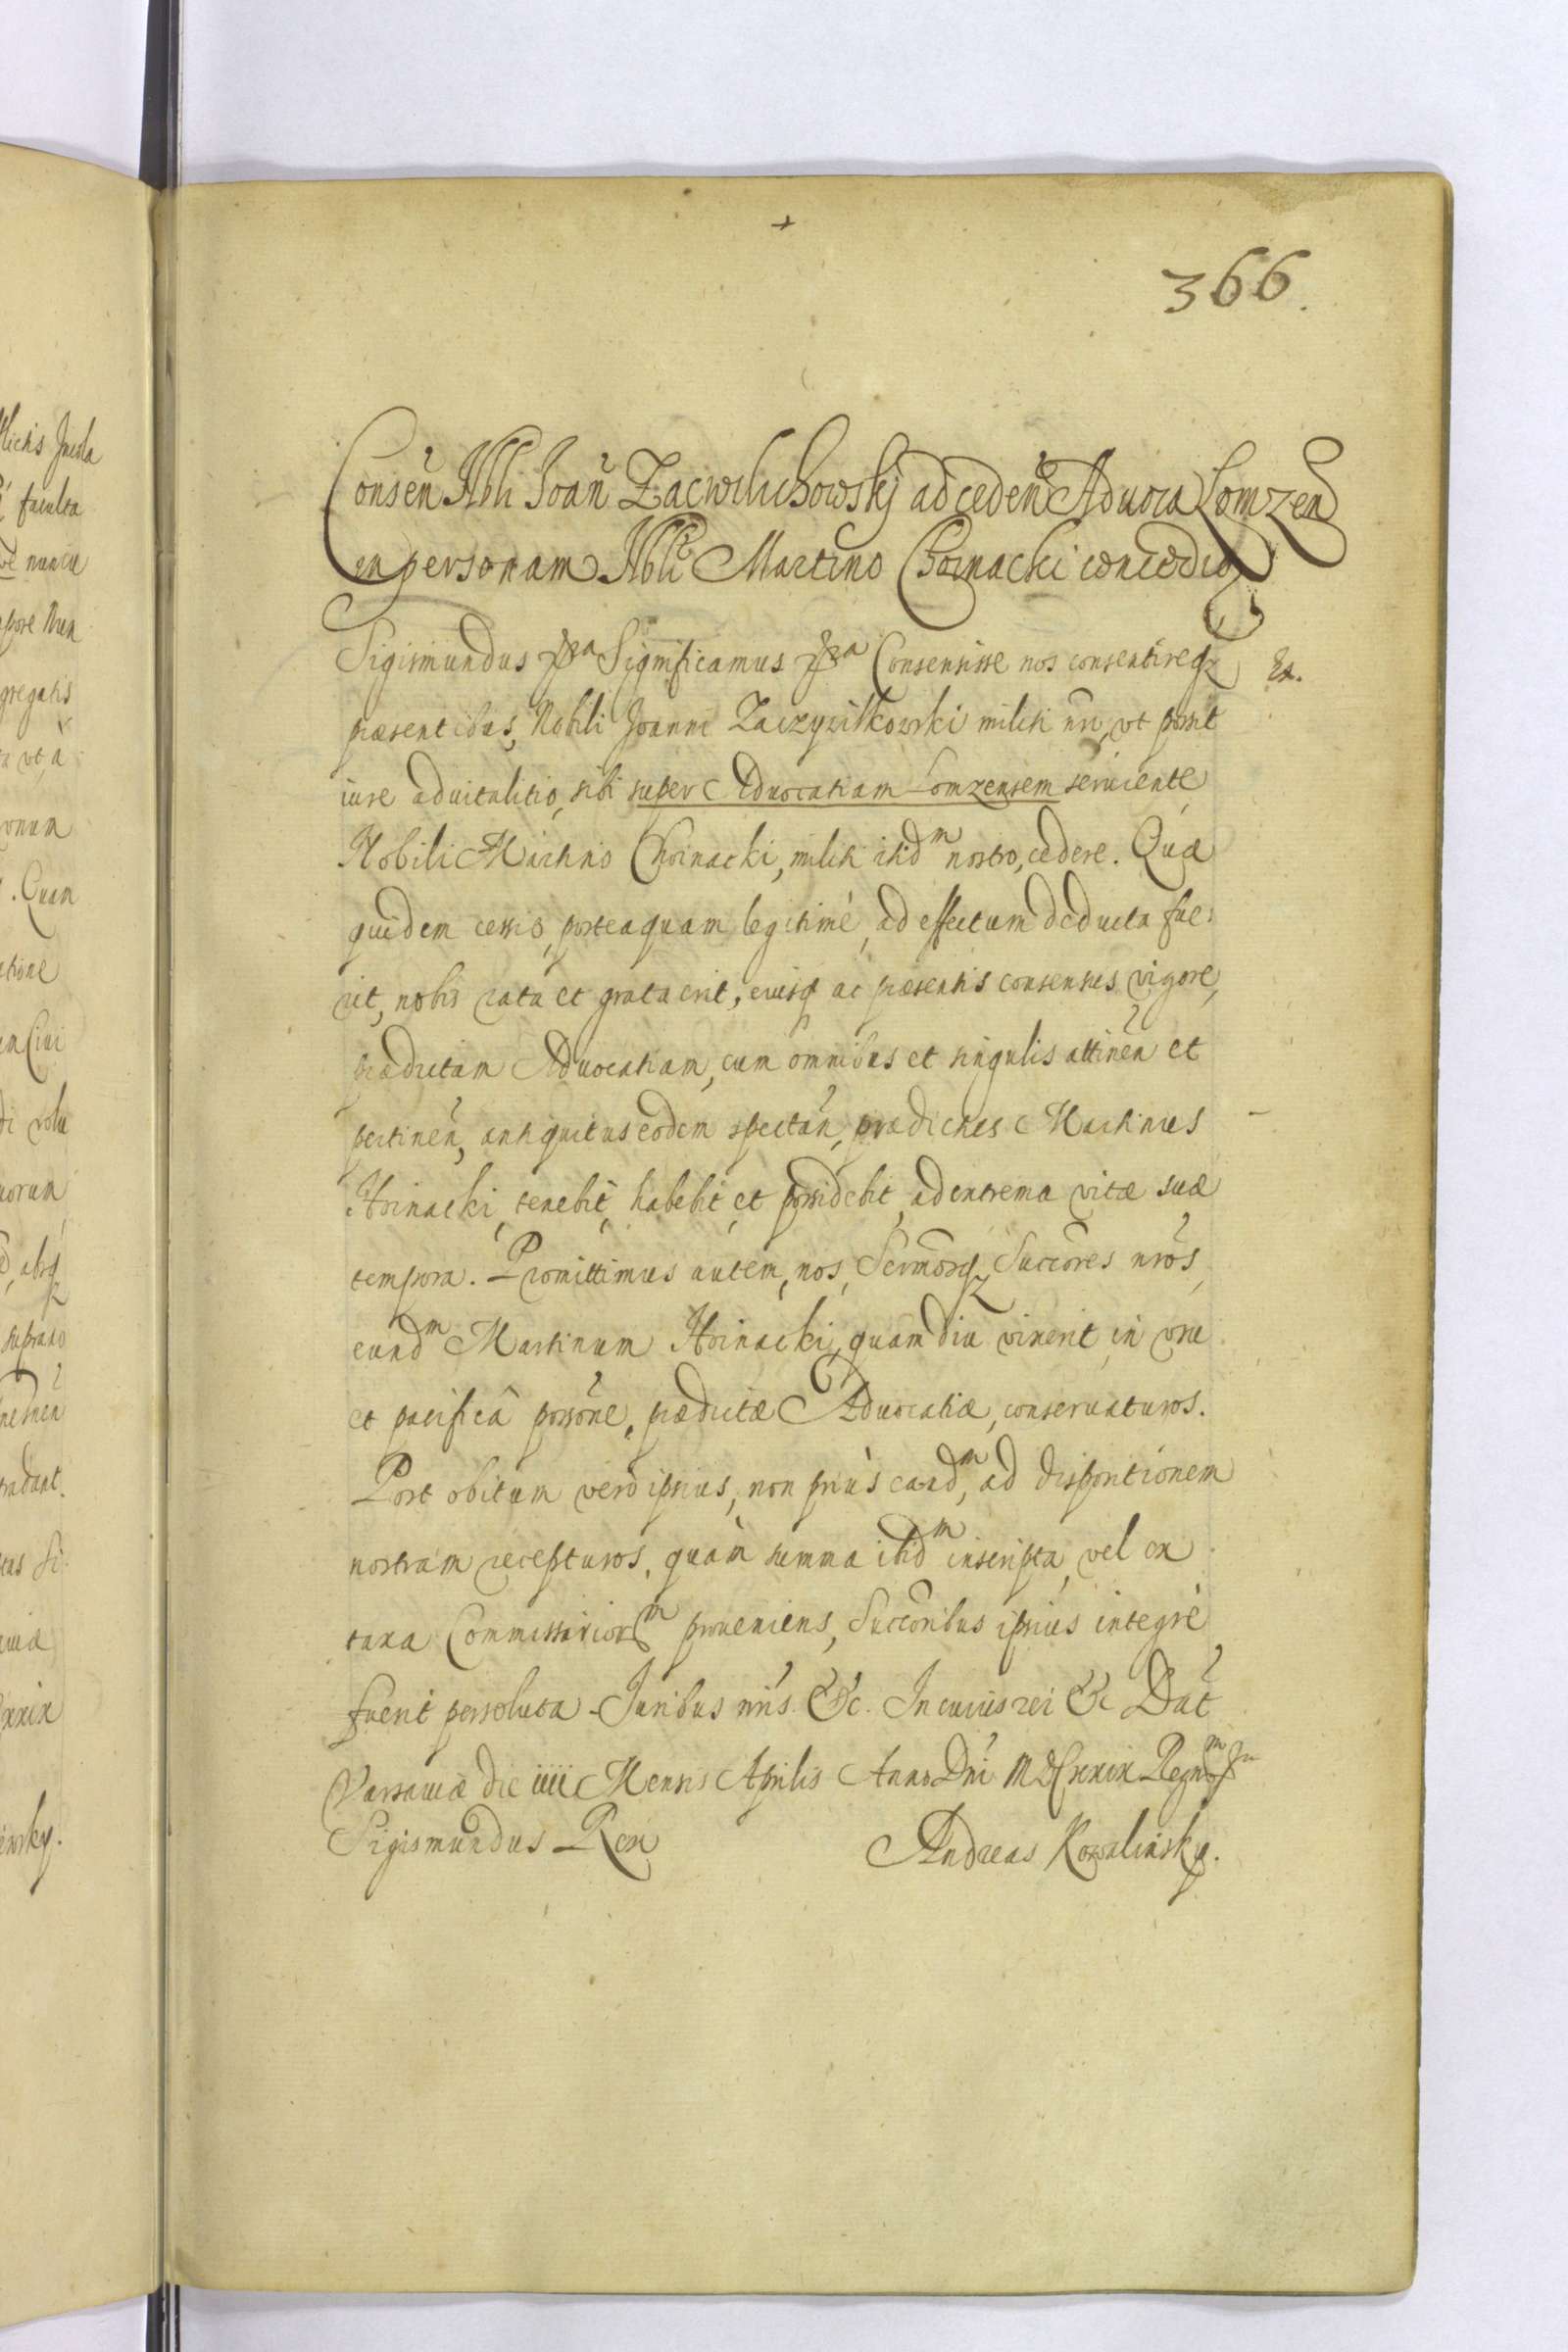 366.
Conseñ Nbli Joañ Zacwilichowskj ad cedeñ Aduoca Lomzeñ
in personam Nbli Martino Choinacki
Sigismundus &a Significamus &a Consensisse nos consentireq₃
Ex.
præsentibus, Nobili Joanni militi nrõ, vt possit
iure aduitalitio, sibi super Aduocatiam Lomzensem seruiente
Nobili Martino Choinacki, militi itidᵐ nostro, cedere. Quæ
quidem cessio, posteaquam legitimè, ad effectum deducta fue:
rit, nobis rata et grata erit, eiusq₃ ac præsentis consensus vigore,
prædictam Aduocatiam, cum omnibus et singulis attineñ et
pertineñ, antiquitus eodem spectañ, prædictus Martinus
Hoinacki, tenebit, habebit, et possidebit, ad extrema vitæ suæ
tempora. Promittimus autem, nos, Sermosq₃ Succōres nrõs,
eundᵐ Martinum Hoinacki, quam diu vixerit, in vsu
et pacificâ possõne, prædictæ Aduocatiæ, conseruaturos.
Post obitum verò ipsius, non priùs eandᵐ, ad dispositionem
nostram recepturos, quàm summa ibidᵐ inscripta, vel ex
taxa Commissariorᵐ proueniens, Succōribus ipsius integrè
fuerit persoluta. Juribus nrĩs &c. In cuius rei &c Dat̃
Varsauiæ die iiii Mensis Aprilis Anno Dñi MDCXXIX Regnorᵐ
Sigismundus Rex
Andreas Kowalinsky.